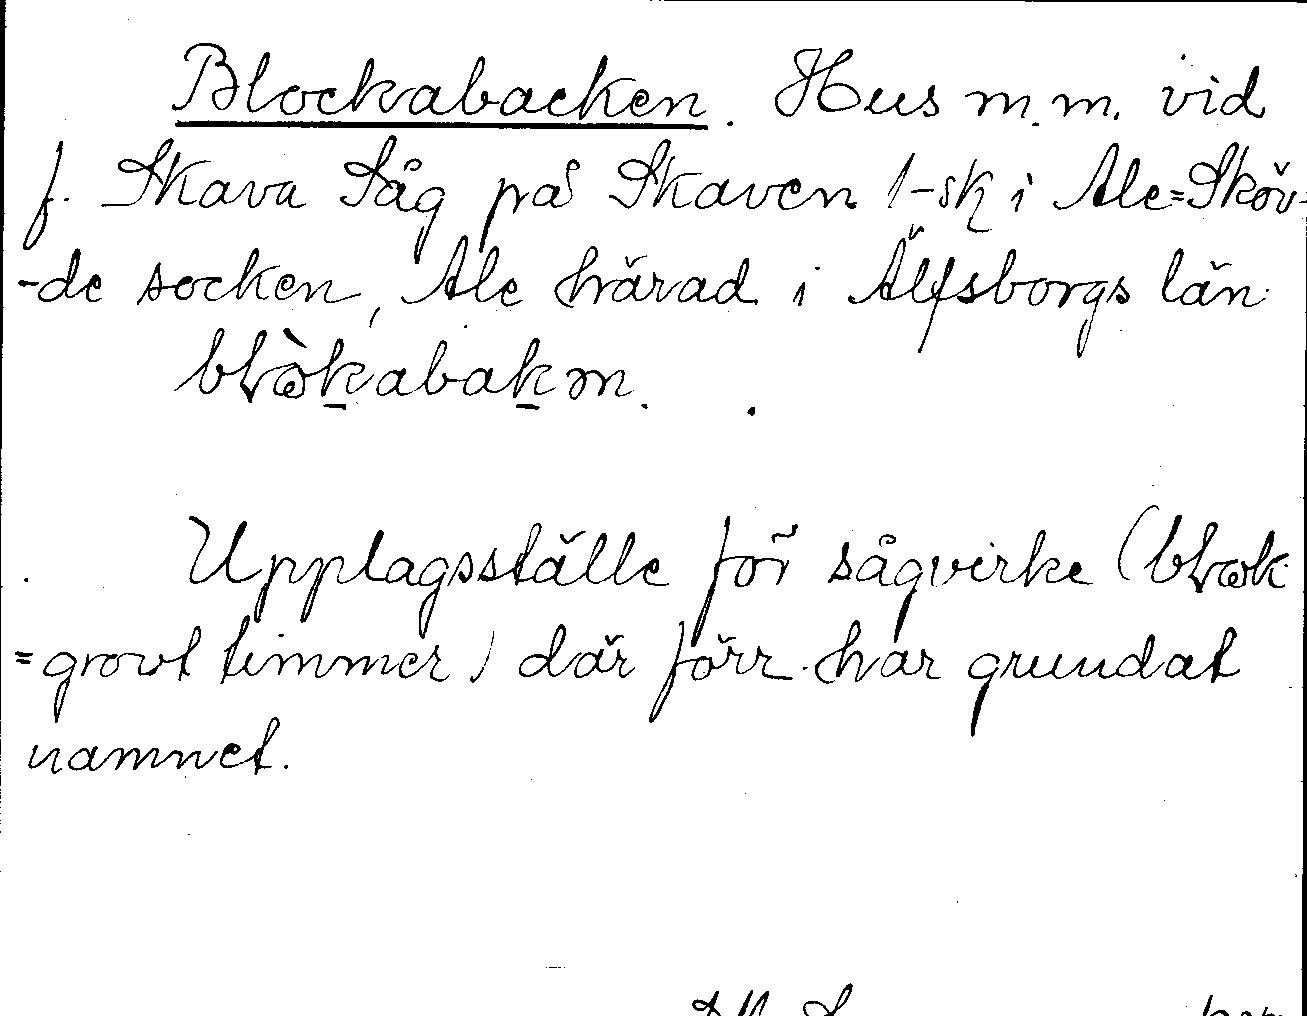 Blockabacken. Hus m.m. vid
f. Skava Såg på Skaven 1-sk i Ale=Sköv-
-de socken, Ale härad i Älfsborgs län.
blòkabakm.
Upplagsställe för sågvirke (blok
=grovt timmer) där förr har grundat
namnet.